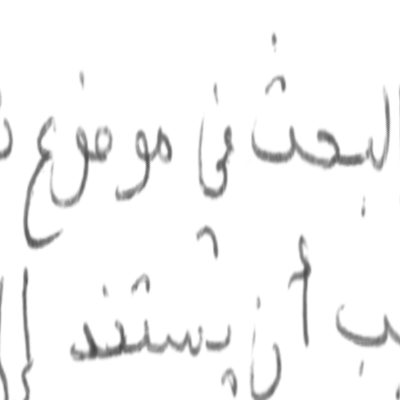 البحث في موضوع
أن يستند إلى